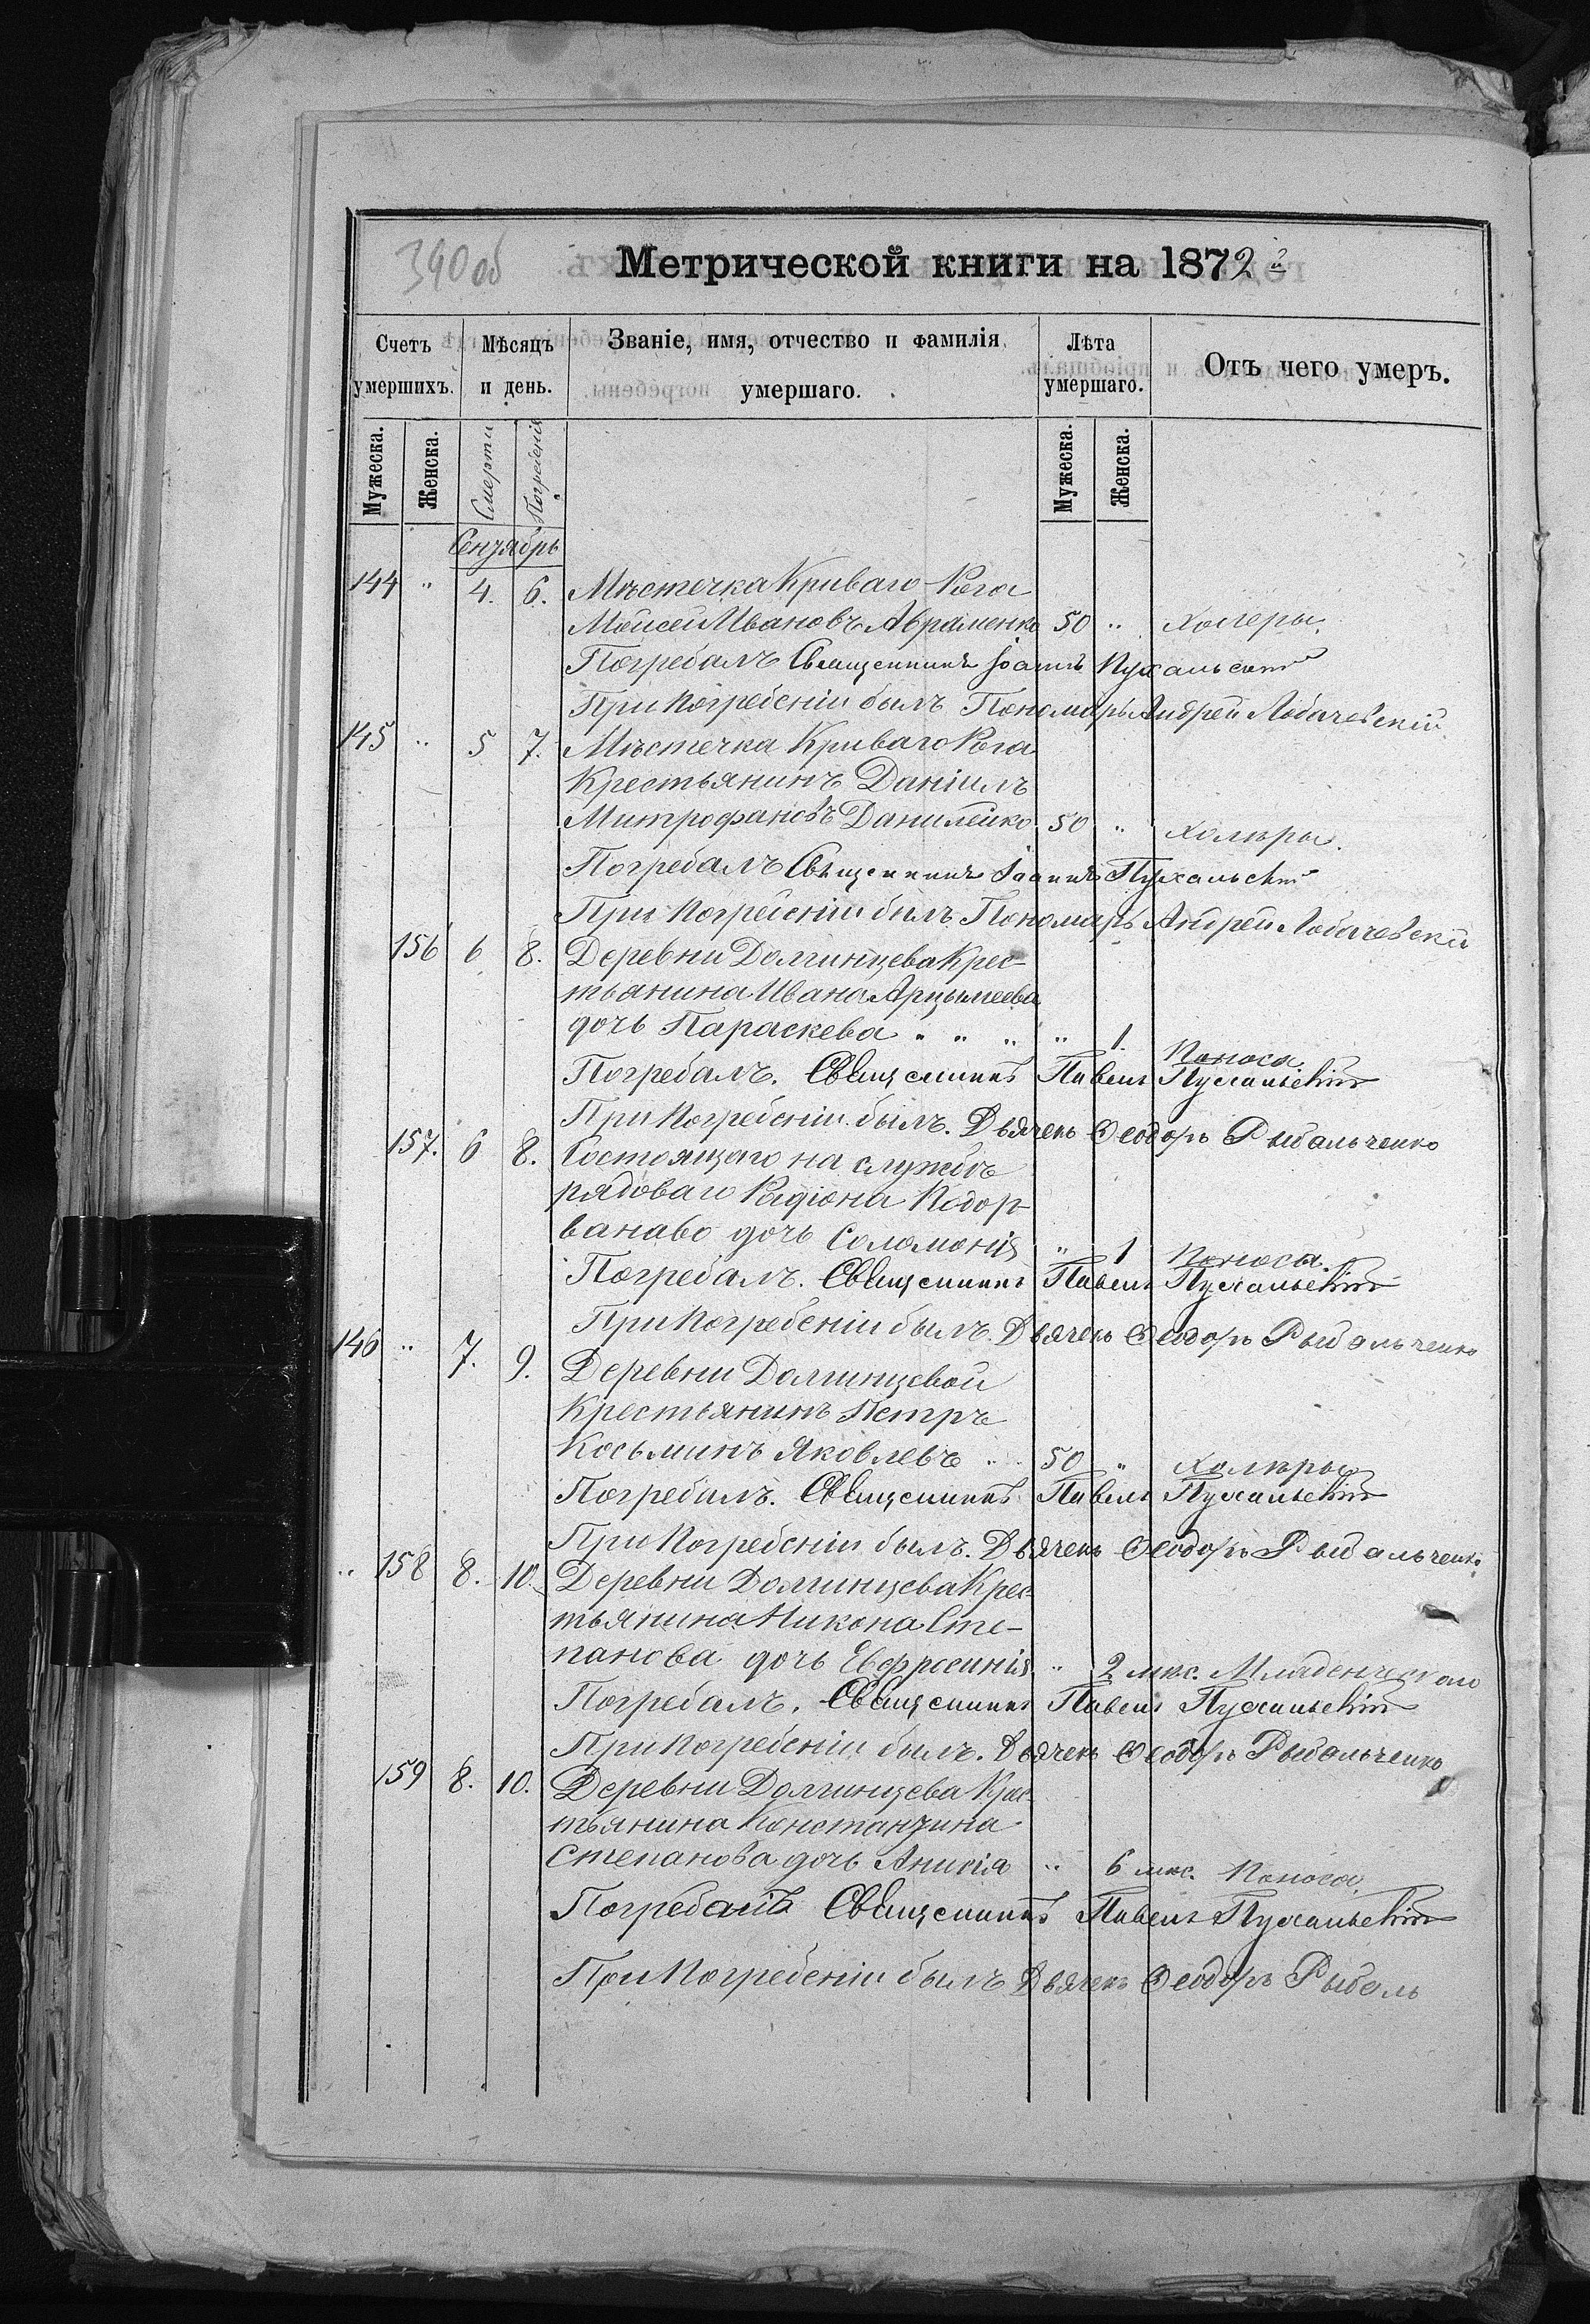 390 об
Метрической книги на 1872й
Счетъ умершихъ.
Мѣсяцъ и день.
Званіе, имя, отчество и фамилія умершаго.
Лѣта умершаго.
Отъ чего умеръ.
Мужеска. Женска. Смерти Погребенія Мужеска. Женска.
Сентябрь
144 " 4. 6. Мѣстечка Криваго-Рога
Моисей Ивановъ Авраменко 50 " Холеры.
Погребалъ Священникъ Іоаннъ Пухальскій
При погребеніи былъ Пономарь Андрей Лобачевскій.
145 " 5 7. Мѣстечка Криваго Рога
Крестьянинъ Даніилъ
Митрофановъ Данилейко 50 " Холѣры.
Погребалъ Священникъ Іоаннъ Пухальскій
При погребеніи былъ Пономарь Андрей Лобачевскій
156 6 8. Деревни Долгинцева Крес-
тьянина Ивана Артымеева
дочь Параскева " " " " 1. Поноса
Погребалъ. Священникъ Павелъ Пухальскій
При погребеніи былъ. Дьячекъ Ѳеодоръ Рыбальченко
157. 6 8. Состоящаго на службѣ
рядоваго Радіона Подор-
ванаво дочь Соломонія " 1 Поноса.
Погребалъ. Священникъ Павелъ Пухальскій
При погребеніи былъ. Дьячекъ Ѳеодоръ Рыбальченко
146 " 7. 9. Деревни Долгинцевой
Крестьянинъ Петръ
Косьминъ Яковлевъ " 50 " Холѣры
Погребалъ. Священникъ Павелъ Пухальскій
При погребеніи былъ. Дьячекъ Ѳеодоръ Рыбальченко
" 158 8. 10. Деревни Долгинцева Крес-
тьянина Никона Сте-
панова дочь Евфросинія " 2 мѣс. Младенческаго
Погребалъ. Священникъ Павелъ Пухальскій
При погребеніи былъ. Дьячекъ Ѳеодоръ Рыбальченко
159 8. 10. Деревни Долгинцева Крес-
тьянина Константина
Степанова дочь Анисія " 6 мѣс. Поноса.
Погребалъ Священникъ Павелъ Пухальскій
При погребеніи былъ Дьячекъ Ѳеодоръ Рыбаль